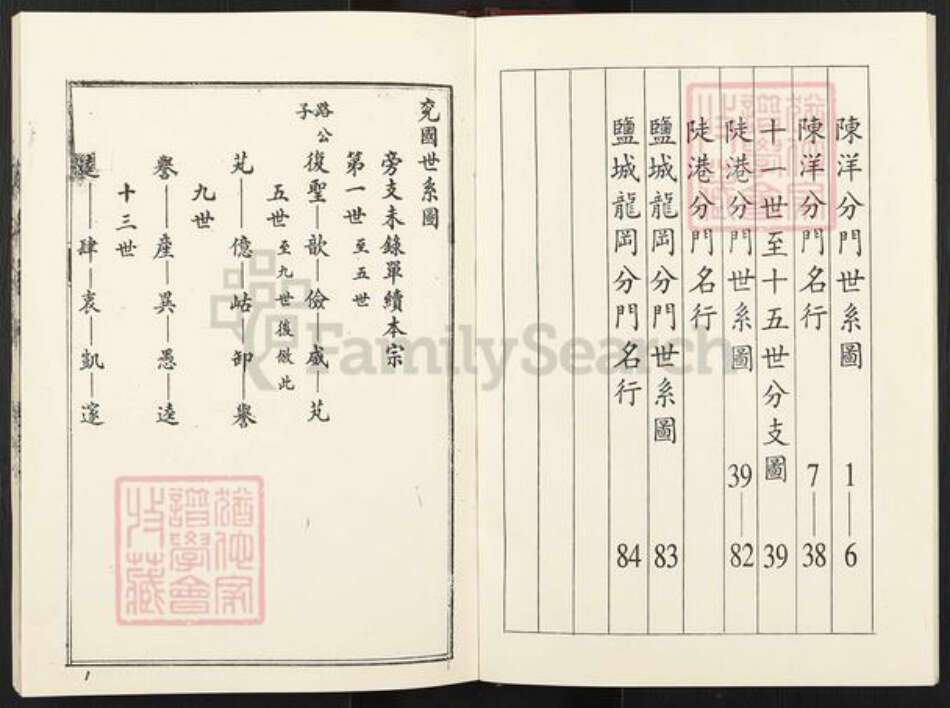 陳洋分門世系圖 1—6
陳洋分門名行 7—38
十一世至十五世分支圖 39
陡港分門世系圖 39—82
陡港分門名行
鹽城龍岡分門世系圖 83
鹽城龍岡分門名行 84
兗國世系圖
旁支未錄單續本宗
第一世至五世
路公子 復聖—歆—儉—威—芃
五世至九世後倣此
芃—億—岵—卸—譽
九世
譽—產—異—愚—逵
十三世
逵—肆—衷—凱—邃
1
FamilySearch